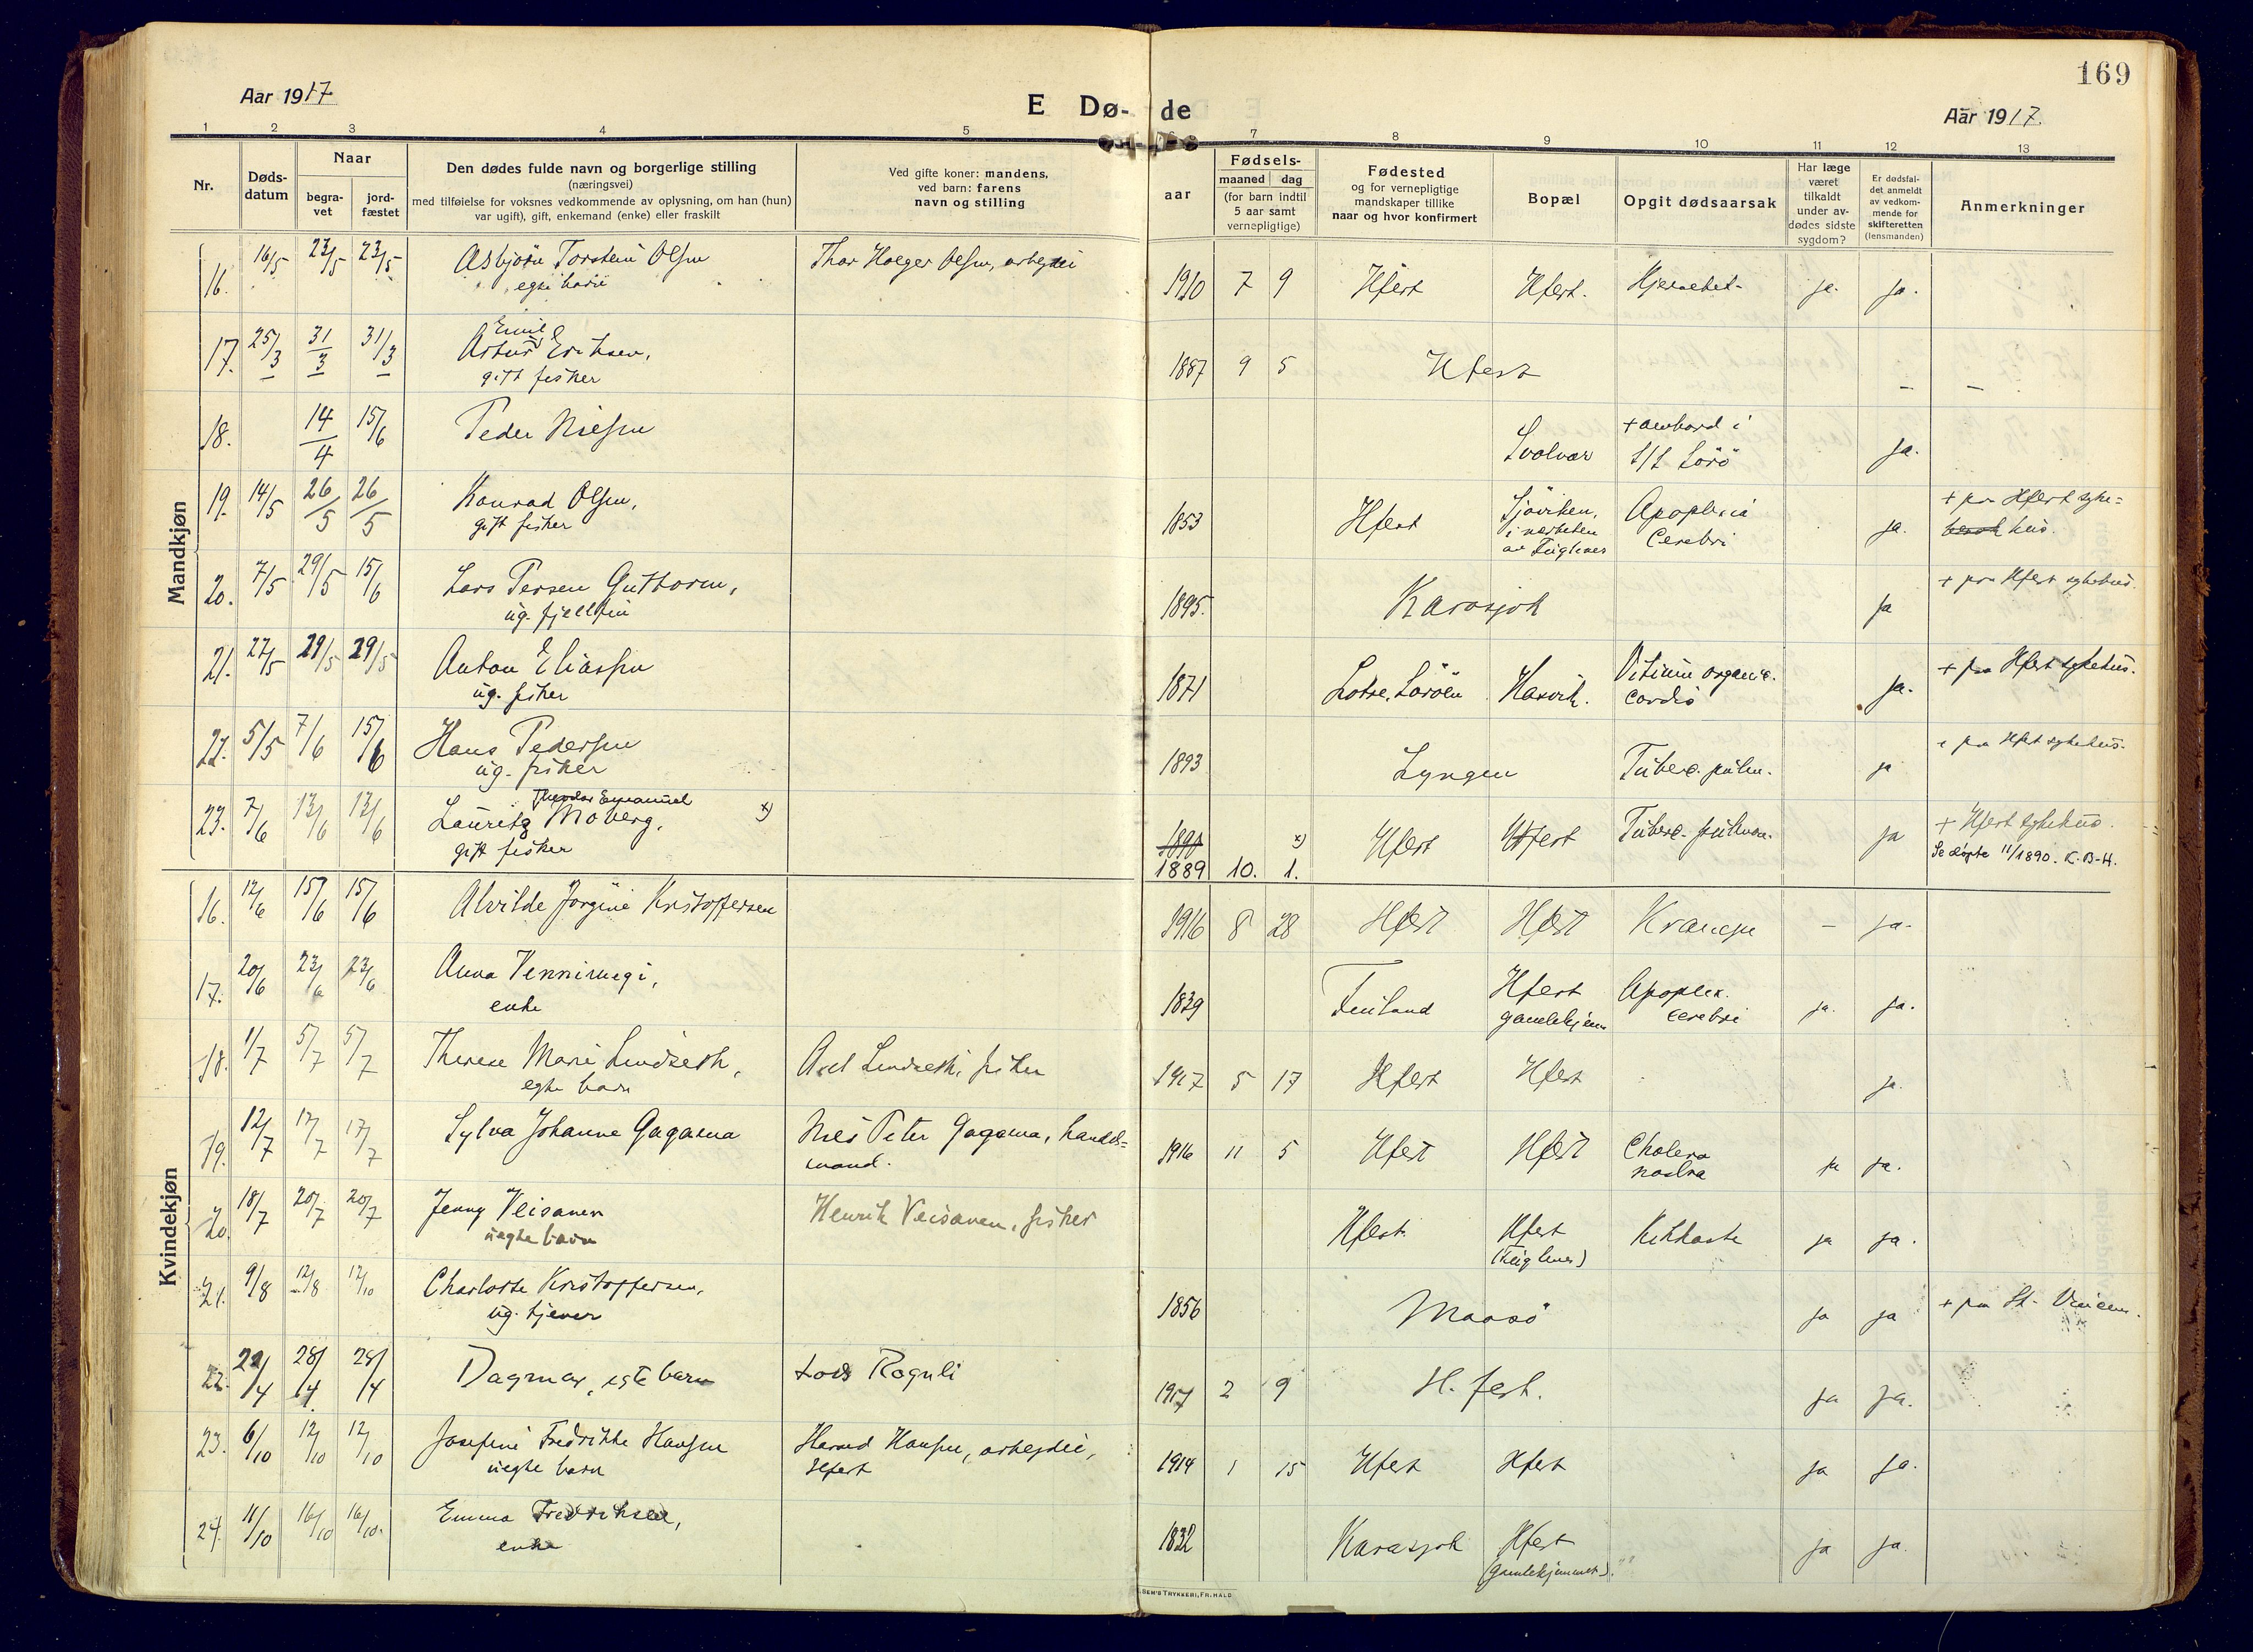 169
Aar 1917
E Dø- de
Aar 1917.
1 2 3 4 5 6 7 8 9 10 11 12 13
Nr.
Døds-
datum
Naar
begra-
vet
jord-
fæstet
Den dødes fulde navn og borgerlige stilling
(næringsvei)
med tilføielse for voksnes vedkommende av oplysning, om han (hun)
var ugift), gift, enkemand (enke) eller fraskilt
Ved gifte koner: mandens,
ved barn: farens
navn og stilling
aar
Fødsels-
maaned dag
(for barn indtil
5 aar samt
vernepligtige)
Fødested
og for vernepligtige
mandskaper tillike
naar og hvor konfirmert
Bopæl
Opgit dødsaarsak
Har læge
været
tilkaldt
under av-
dødes sidste
sygdom?
Er dødsfal-
det anmeldt
av vedkom-
mende for
skifteretten
(lensmanden)
Anmerkninger
Mandkjøn
16. 16/5 23/5 23/5 Asbjörn Torstein Olsen Thor Holger Olsen, arbeider 1910 7 9 Hfest Hfest. ja. ja.
egte barn
Emil
17. 25/3 31/3 31/3 Artur Eriksen, 1887 9 5 Hfest – –
gift fisker
18. 14/4 15/6 Peder Nielsen Svolvær + ombord i ja.
S/S Sörö
19. 14/5 26/5 26/5 Konrad Olsen, 1853 Hfest Sjöviken, Apoplexia ja. + paa Hfest syke=
gift fisker i nærheten Cerebri hus.
av Fuglenes
20. 7/5 29/5 15/6 Lars Persen Guttorm, 1895. Karasjok ja + paa Hfest sykehus.
ug. fjellfin
21. 27/5 29/5 29/5 Anton Eliassen 1871 Söröen Hasvik. Vitium organic. ja. + paa Hfest sykehus.
ug. fisker cordis
22. 5/5 7/6 15/6 Hans Pedersen 1893 Lyngen Tuberc. pulm. ja + paa Hfest sykehus.
ug. fisker
Theodor Emanuel
23. 7/6 13/6 13/6 Lauritz Moberg, x) 1890 x) Hfest Hfest Tuberc. pulmon. ja + Hfest sykehus.
gift fisker 1889 10. 1. Se döpte 11/1890. K.B-H.
Kvindekjøn
16. 12/6 15/6 15/6 Alvilde Jörgine Kristoffersen 1916 8 28 Hfest Hfest Krampe – ja.
17. 20/6 23/6 23/6 Anna Vennimegi, 1839 Finland Hfest Apoplex. ja. ja.
enke gamlehjem cerebri
18. 1/7 5/7 5/7 Therese Marie Lindseth, Axel Lindseth, fisker 1917 5 17 Hfest Hfest ja.
egte barn
19. 12/7 17/7 17/7 Sylva Johanne Gagama Nils Peter Gagama, handels= 1916 11 5 Hfest Hfest Cholera ja ja.
mand. nostra
20. 18/7 20/7 20/7 Jenny Veisanen Henrik Veisanen, fisker Hfest. Hfest Kikhoste ja ja.
uegte barn (Fuglenes)
21. 9/8 12/8 12/10 Charlotte Kristoffersen, 1856 Maasö ja ja + paa St. Vincens.
ug. tjener
22. 22/4 28/4 28/4 Dagmar, egte barn Lois Roguli 1917 2 9 H.fest. ja ja.
23. 6/10 12/10 12/10 Josefine Fredrikke Hansen Harald Hansen, arbeider, 1914 1 15 Hfest Hfest ja ja.
uegte barn Hfest
24. 11/10 16/10 16/10. Emma Fredriksen, 1832 Karasjok Hfest ja ja.
enke (gamlehjemmet).
SEM'S TRYKKERI, FR.HALD